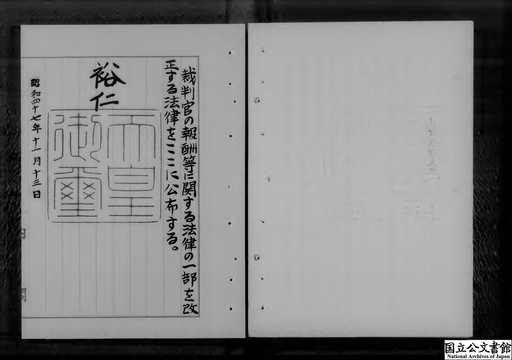 裁判官の報酬等に関する法律の一部を改
正する法律をここに公布する。
裕仁
天皇
御璽
昭和四十七年十一月十三日
内
閣
国立公文書館
National Archives of Japan